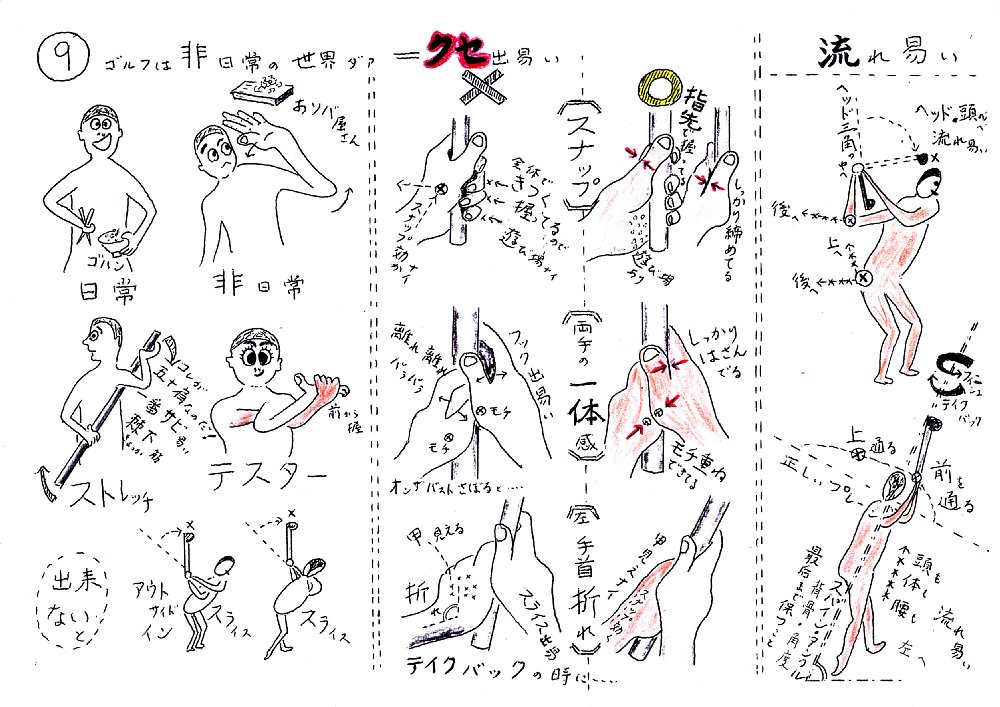 9
ゴルフは非日常の世界ダァ
=クセ出易い
流れ易い
おソバ屋さん
ゴハン
日常
非日常
ココが
五十肩なのだ!
一番サビ易い
棘下筋
ストレッチ
前から握
テスター
出来ないと
アウトサイドイン
スライス
スライス
スナップ
全体できつく握ってるので遊び場ナイ
スナップ効かナイ
指先で握ってる
しっかり締めてる
遊び場
両手の一体感
離れ離れ
バラバラ
フック出易い
モチ
モチ
オンザバストさぼると……
しっかりはさんでる
モチ重ねできてる
左手首折れ
甲、見える
折
スライス出易
テイクバックの時に……
ヘッド三角の中へ
ヘッド、頭へ流れ易い
後へ
上へ
後へ
テイクバック
上通る
正しいプレ
前を通る
頭も体も腰も
左へ
流れ易い
スパイン・アングル
背骨角度
最后まで保つこと